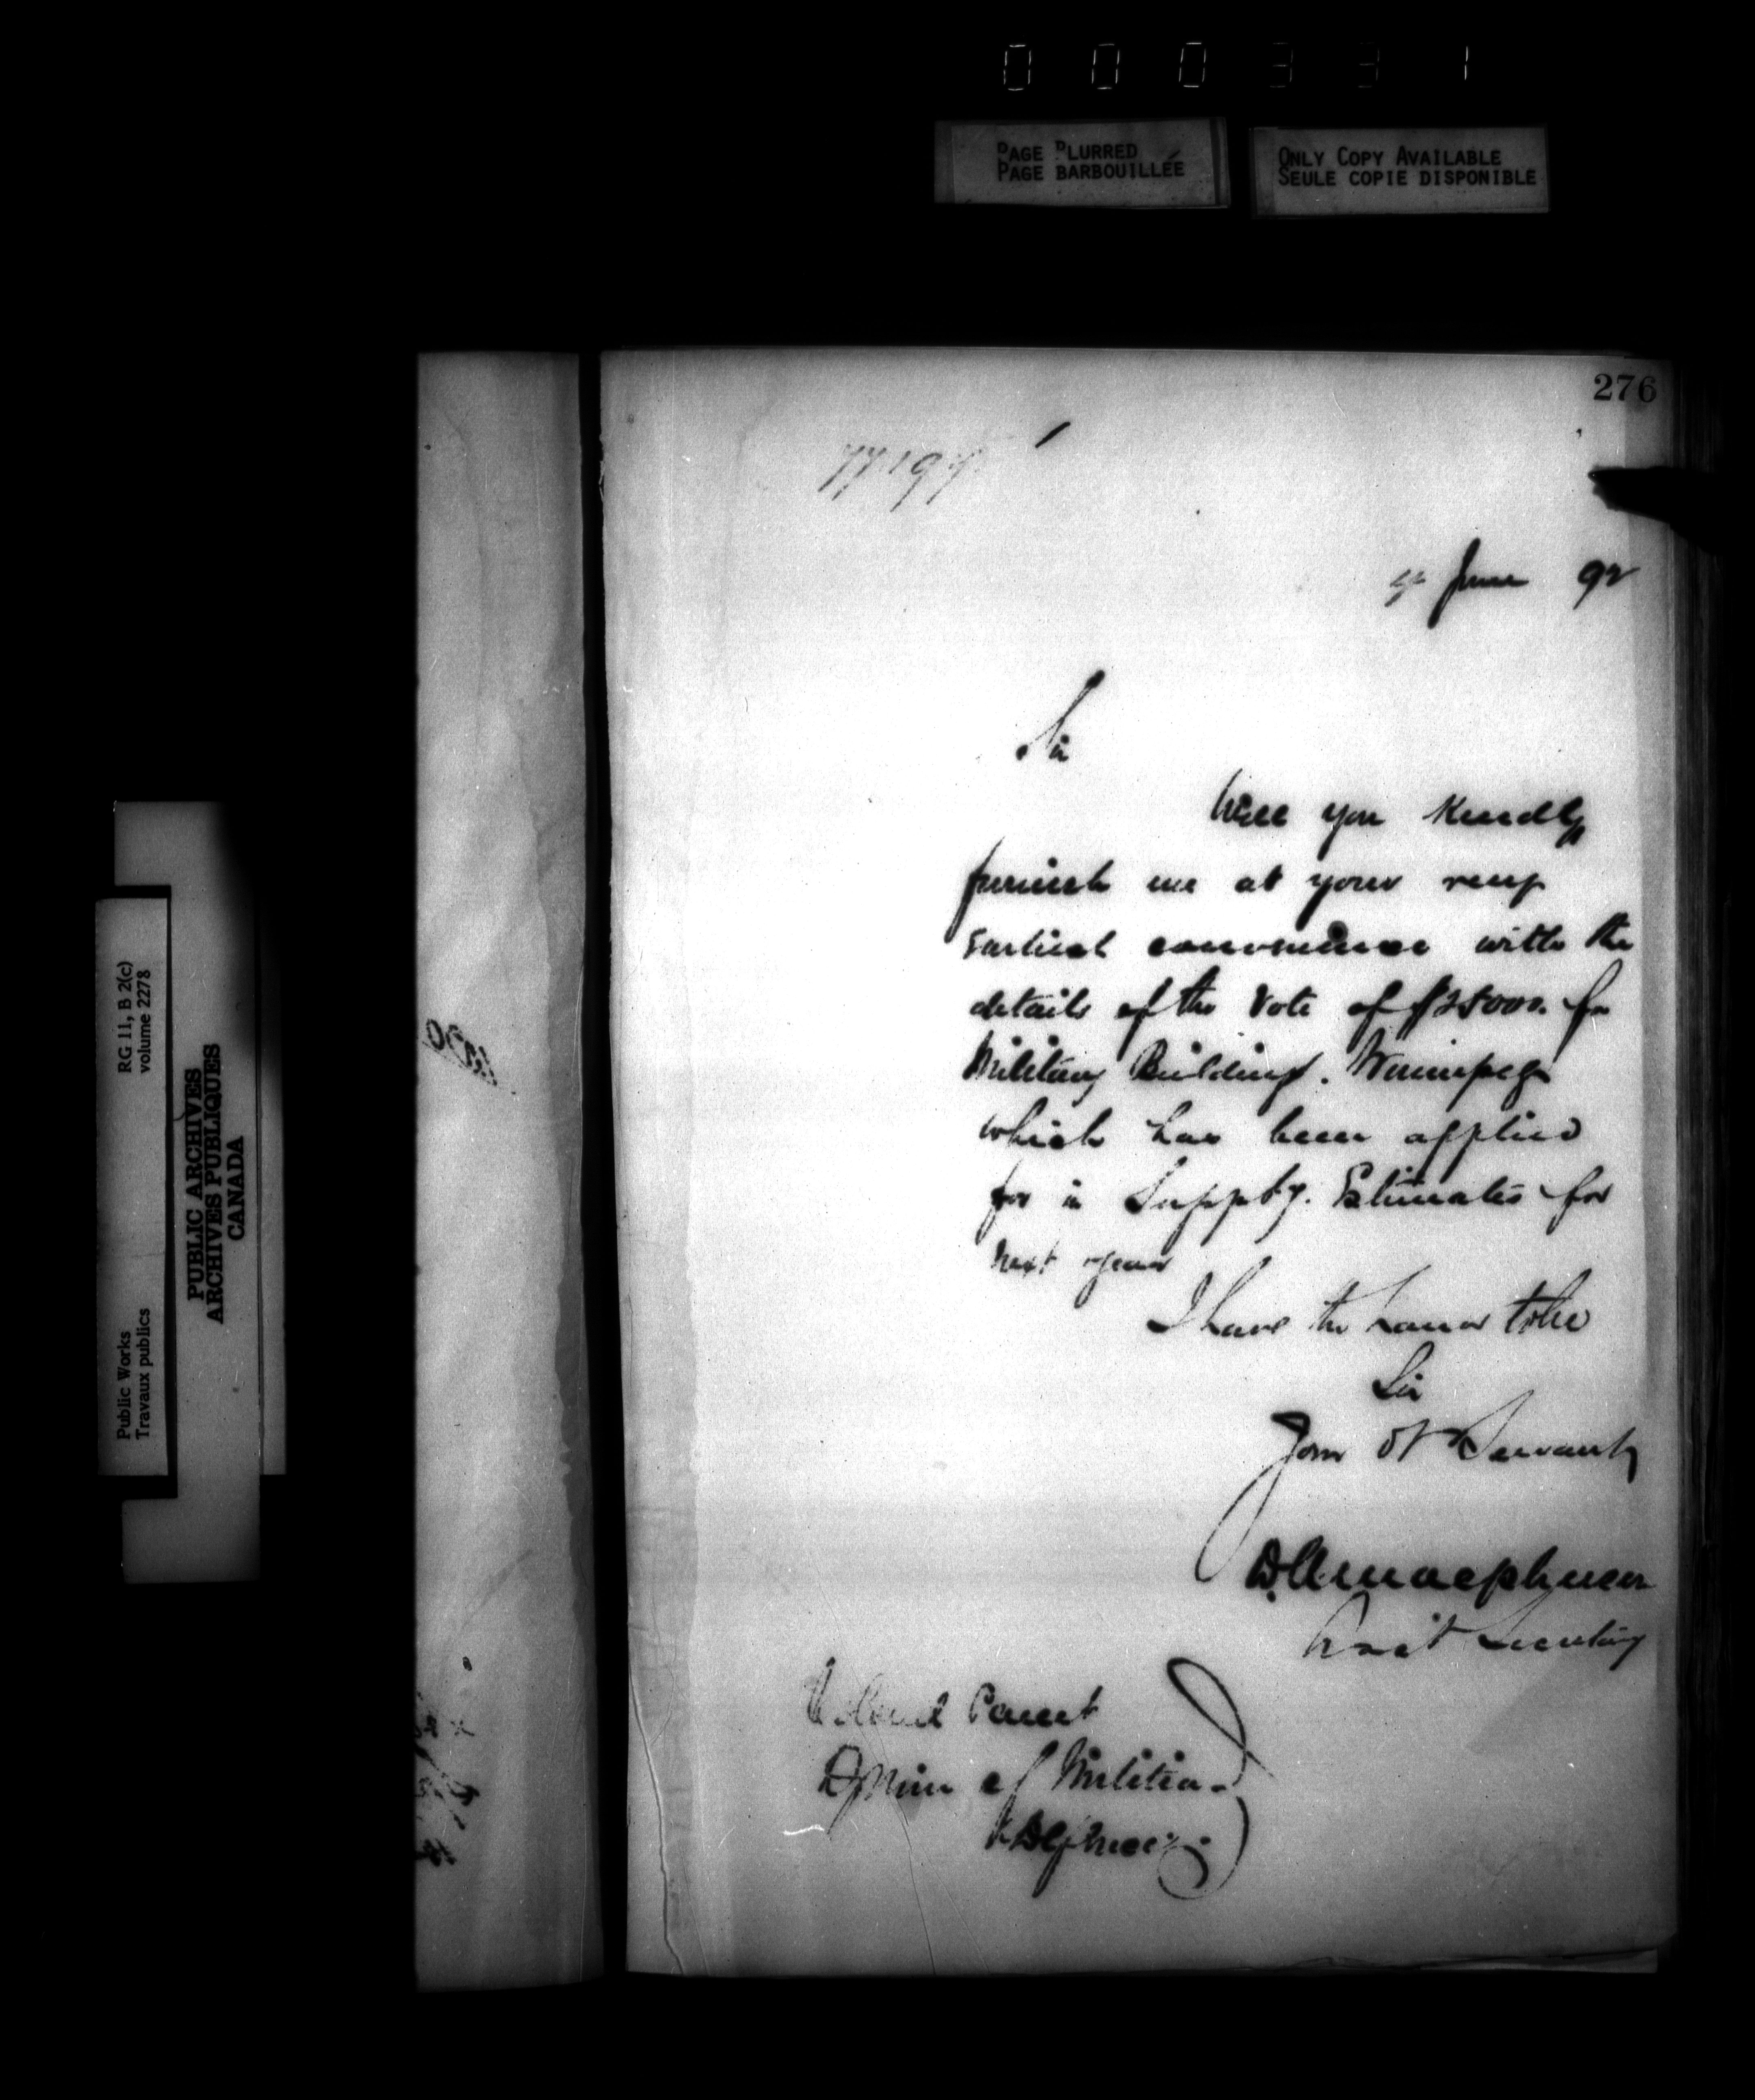 000331
PAGE BLURRED
PAGE BARBOUILLÉE
ONLY COPY AVAILABLE
SEULE COPIE DISPONIBLE
276
June 92
Sir
Will you Kindly
furnish me at your very
Earliest convenience with the
details of the Vote of $25000. for
Military Buildings. Winnipeg
which has been applied
for in Supply. Estimates for
next year
I have the honor to be
Sir
Your Ob Servant
D.A. Macpherson
Assist Secretary
Colonel Panet
D Min of Militia
& Defence
RG 11, B 2(c)
volume 2278
Public Works
Travaux publics
PUBLIC ARCHIVES
ARCHIVES PUBLIQUES
CANADA